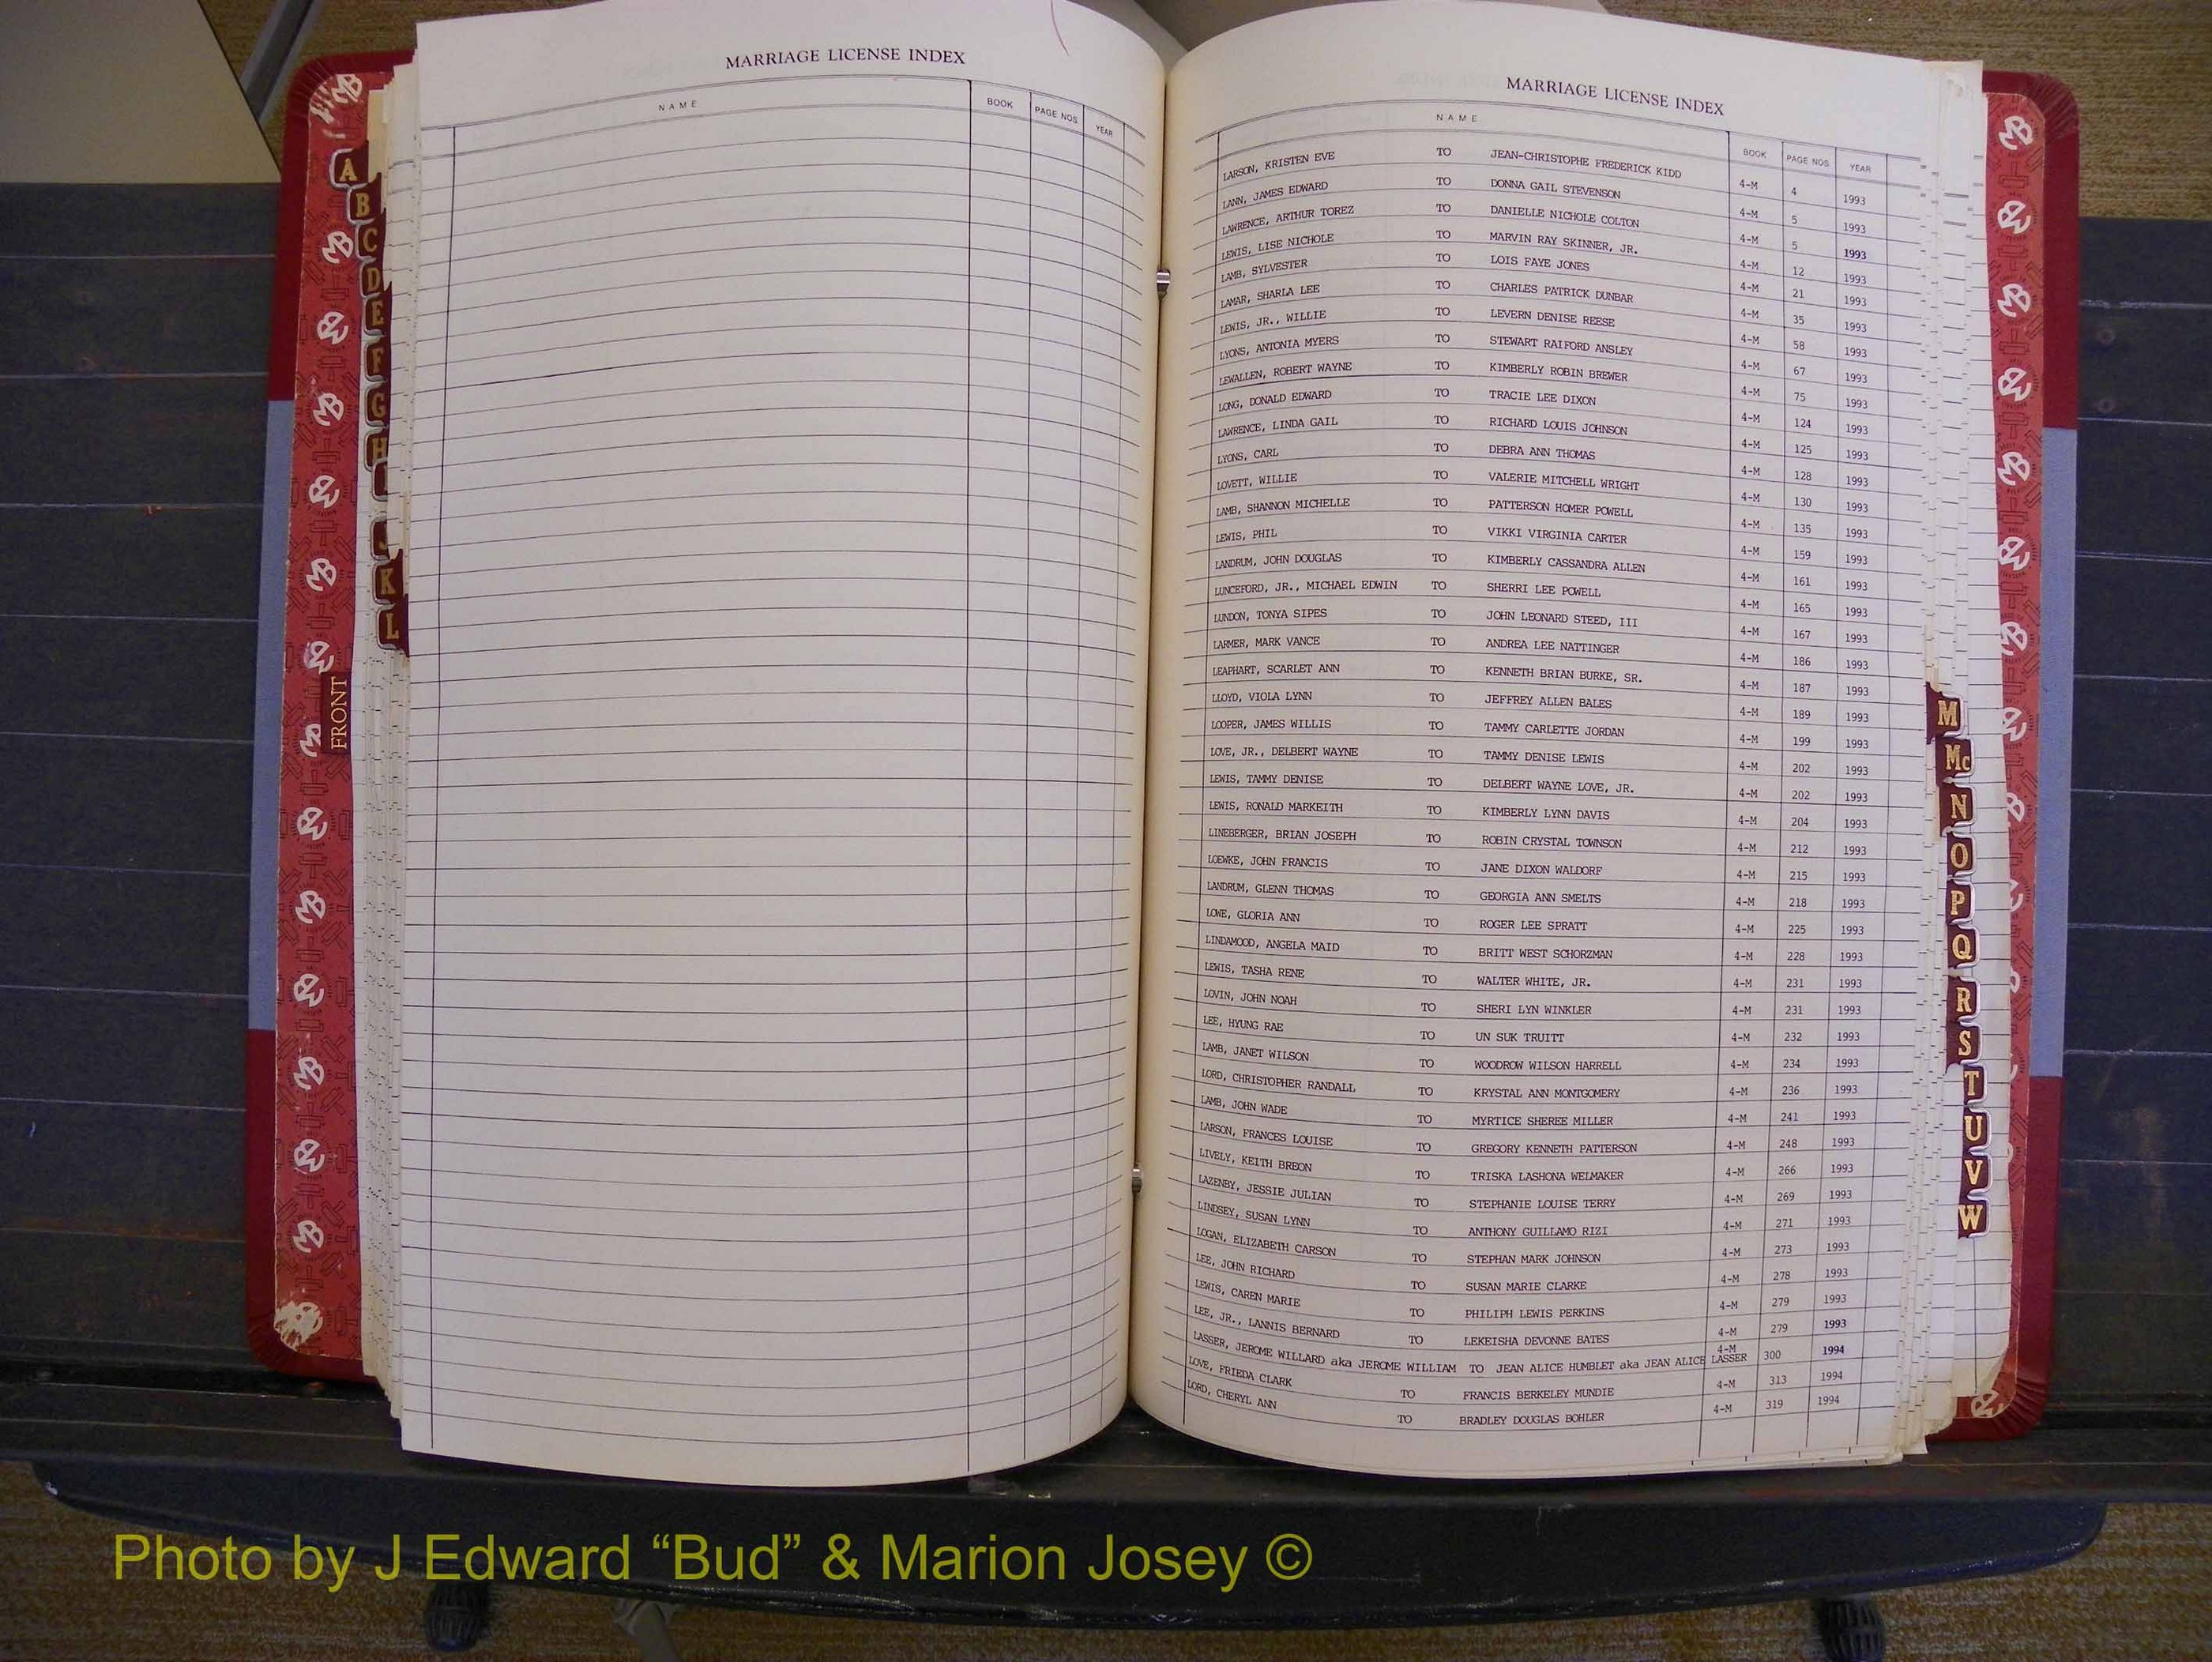 MARRIAGE LICENSE INDEX
NAME BOOK PAGE NOS. YEAR
A
B
C
D
E
F
G
H
K
L
FRONT
MARRIAGE LICENSE INDEX
NAME BOOK PAGE NOS. YEAR
LARSON, KRISTEN EVE TO JEAN-CHRISTOPHE FREDERICK KIDD 4-M 4 1993
LANN, JAMES EDWARD TO DONNA GAIL STEVENSON 4-M 5 1993
LAWRENCE, ARTHUR TOREZ TO DANIELLE NICHOLE COLTON 4-M 5 1993
LEWIS, LISE NICHOLE TO MARVIN RAY SKINNER, JR. 4-M 12 1993
LAMB, SYLVESTER TO LOIS FAYE JONES 4-M 21 1993
LAMAR, SHARLA LEE TO CHARLES PATRICK DUNBAR 4-M 35 1993
LEWIS, JR., WILLIE TO LEVERN DENISE REESE 4-M 58 1993
LYONS, ANTONIA MYERS TO STEWART RAIFORD ANSLEY 4-M 67 1993
LEWALLEN, ROBERT WAYNE TO KIMBERLY ROBIN BREWER 4-M 75 1993
LONG, DONALD EDWARD TO TRACIE LEE DIXON 4-M 124 1993
LAWRENCE, LINDA GAIL TO RICHARD LOUIS JOHNSON 4-M 125 1993
LYONS, CARL TO DEBRA ANN THOMAS 4-M 128 1993
LOVETT, WILLIE TO VALERIE MITCHELL WRIGHT 4-M 130 1993
LAMB, SHANNON MICHELLE TO PATTERSON HOMER POWELL 4-M 135 1993
LEWIS, PHIL TO VIKKI VIRGINIA CARTER 4-M 159 1993
LANDRUM, JOHN DOUGLAS TO KIMBERLY CASSANDRA ALLEN 4-M 161 1993
LUNCEFORD, JR., MICHAEL EDWIN TO SHERRI LEE POWELL 4-M 165 1993
LUNDON, TONYA SIPES TO JOHN LEONARD STEED, III 4-M 167 1993
LARMER, MARK VANCE TO ANDREA LEE NATTINGER 4-M 186 1993
LEAPHART, SCARLET ANN TO KENNETH BRIAN BURKE, SR. 4-M 187 1993
LLOYD, VIOLA LYNN TO JEFFREY ALLEN BALES 4-M 189 1993
LOOPER, JAMES WILLIS TO TAMMY CARLETTE JORDAN 4-M 199 1993
LOVE, JR., DELBERT WAYNE TO TAMMY DENISE LEWIS 4-M 202 1993
LEWIS, TAMMY DENISE TO DELBERT WAYNE LOVE, JR. 4-M 202 1993
LEWIS, RONALD MARKEITH TO KIMBERLY LYNN DAVIS 4-M 204 1993
LINEBERGER, BRIAN JOSEPH TO ROBIN CRYSTAL TOWNSON 4-M 212 1993
LOEWKE, JOHN FRANCIS TO JANE DIXON WALDORF 4-M 215 1993
LANDRUM, GLENN THOMAS TO GEORGIA ANN SMELTS 4-M 218 1993
LOWE, GLORIA ANN TO ROGER LEE SPRATT 4-M 225 1993
LINDAMOOD, ANGELA MAID TO BRITT WEST SCHORZMAN 4-M 228 1993
LEWIS, TASHA RENE TO WALTER WHITE, JR. 4-M 231 1993
LOVIN, JOHN NOAH TO SHERI LYN WINKLER 4-M 231 1993
LEE, HYUNG RAE TO UN SUK TRUITT 4-M 232 1993
LAMB, JANET WILSON TO WOODROW WILSON HARRELL 4-M 234 1993
LORD, CHRISTOPHER RANDALL TO KRYSTAL ANN MONTGOMERY 4-M 236 1993
LAMB, JOHN WADE TO MYRTICE SHEREE MILLER 4-M 241 1993
LARSON, FRANCES LOUISE TO GREGORY KENNETH PATTERSON 4-M 248 1993
LIVELY, KEITH BREON TO TRISKA LASHONA WELMAKER 4-M 266 1993
LAZENBY, JESSIE JULIAN TO STEPHANIE LOUISE TERRY 4-M 269 1993
LINDSEY, SUSAN LYNN TO ANTHONY GUILLAMO RIZI 4-M 271 1993
LOGAN, ELIZABETH CARSON TO STEPHAN MARK JOHNSON 4-M 273 1993
LEE, JOHN RICHARD TO SUSAN MARIE CLARKE 4-M 278 1993
LEWIS, CAREN MARIE TO PHILIPH LEWIS PERKINS 4-M 279 1993
LEE, JR., LANNIS BERNARD TO LEKEISHA DEVONNE BATES 4-M 279 1993
LASSER, JEROME WILLARD aka JEROME WILLIAM TO JEAN ALICE HUMBLET aka JEAN ALICE LASSER 4-M 300 1994
LOVE, FRIEDA CLARK TO FRANCIS BERKELEY MUNDIE 4-M 313 1994
LORD, CHERYL ANN TO BRADLEY DOUGLAS BOHLER 4-M 319 1994
M
Mc
N
O
P
Q
R
S
T
U
V
W
Photo by J Edward “Bud” & Marion Josey ©